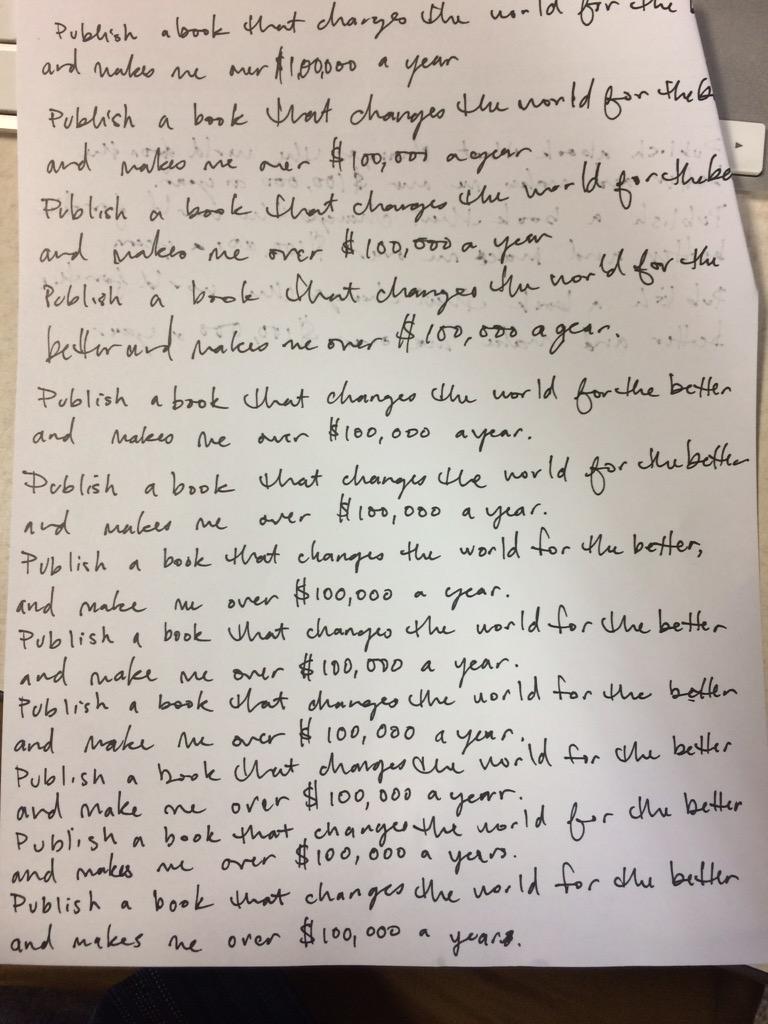 Publish a book that changes the world for the
and makes me over $100,000 a year
Publish a book that changes the world for the b
and makes me over $100,000 a year.
Publish a book that changes the world for the be
and makes me over $100,000 a year
Publish a book that changes the world for the
better and makes me over $100,000 a year.
Publish a book that changes the world for the better
and makes me over $100,000 a year.
Publish a book that changes the world for the better
and makes me over $100,000 a year.
Publish a book that changes the world for the better,
and make me over $100,000 a year.
Publish a book that changes the world for the better
and make me over $100,000 a year.
Publish a book that changes the world for the better
and make me over $100,000 a year.
Publish a book that changes the world for the better
and make me over $100,000 a year.
Publish a book that changes the world for the better
and makes me over $100,000 a years.
Publish a book that changes the world for the better
and makes me over $100,000 a years.